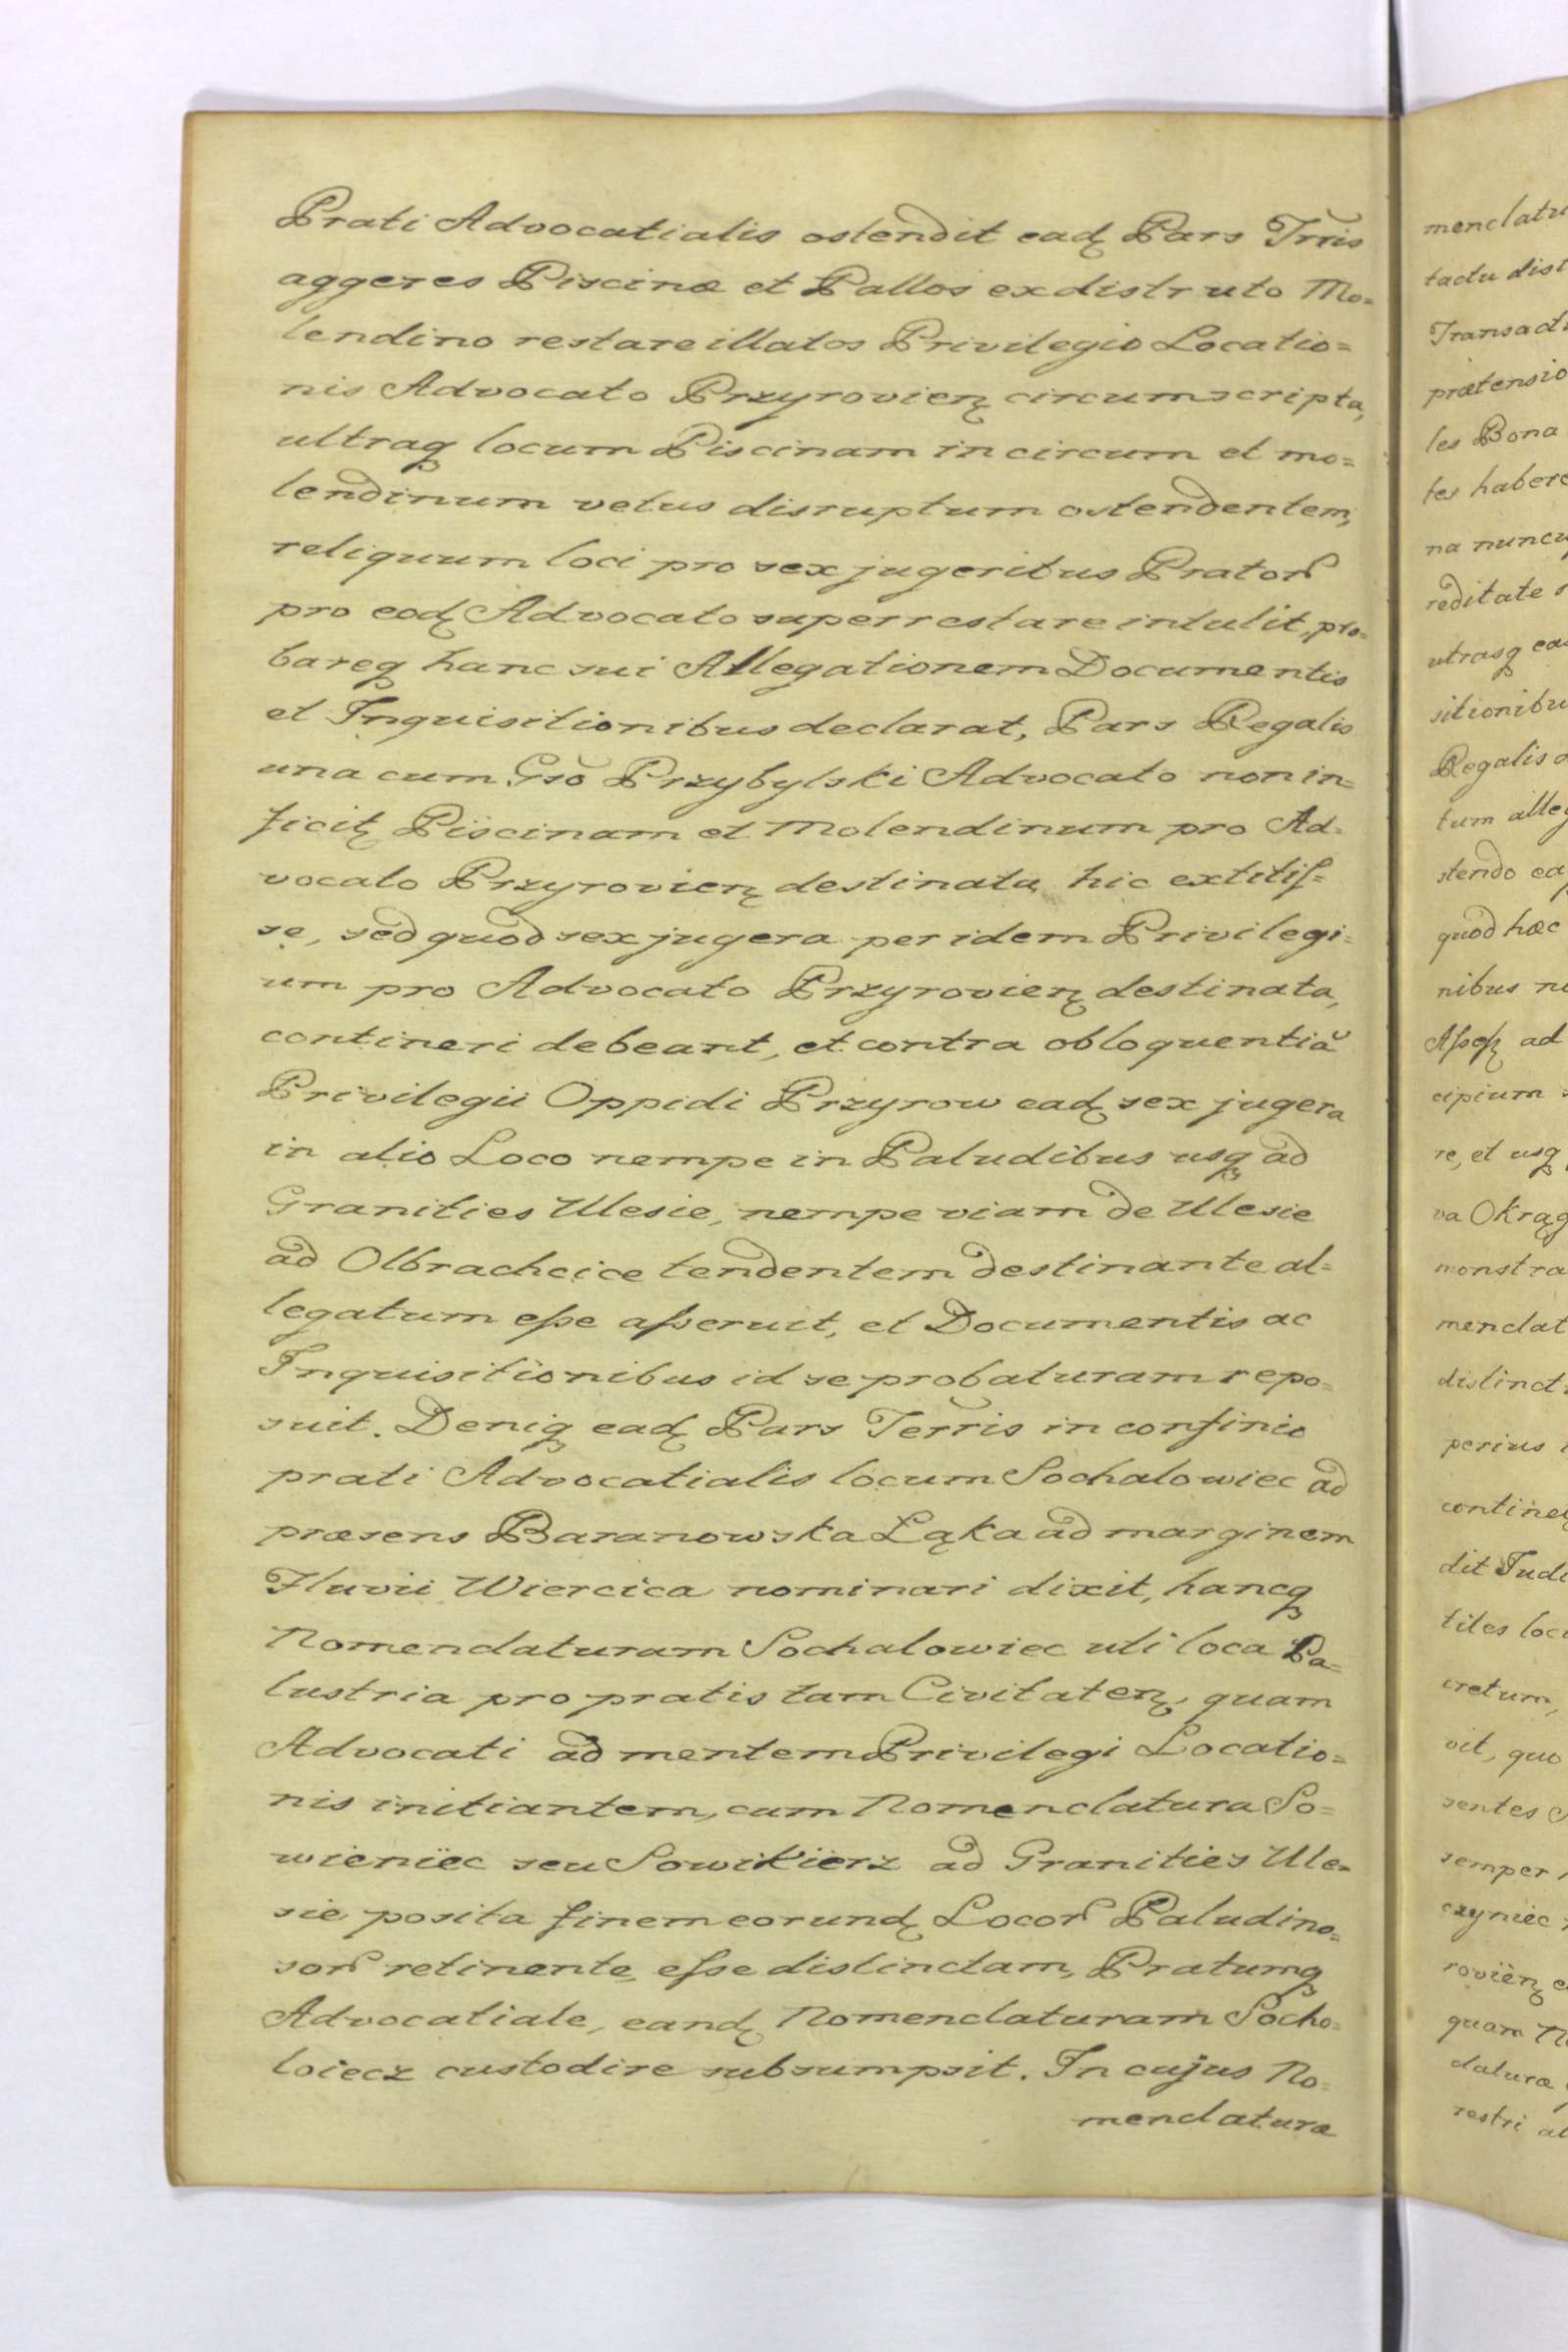 Prati Advocatialis ostendit eadꝫ Pars Trris
aggeres Piscinæ et Pallos ex distruto Mo=
lendino restare illatos Privilegio Locatio=
nis Advocato Przyrovienꝫ circumscripta,
ultraqꝫ locum Piscinam in circum et mo=
lendinum vetus disruptum ostendentem,
reliquum loci pro sex jugeribus Prator
pro eodꝫ Advocato superrestare intulit, pro=
bareqꝫ hanc sui Allegationem Documentis
et Inquisitionibus declarat, Pars Regalis
una cum Gso Przybylski Advocato non in=
ficitꝫ Piscinam et Molendinum pro Ad=
vocato Przyrovienꝫ destinata, hic extitiſ=
se, sed quod sex jugera per idem Privilegi=
um pro Advocato Przyrovienꝫ destinata,
contineri debeant, et contra obloquentiã
Privilegii Oppidi Przyrow eadꝫ sex jugera
in alio Loco nempe in Paludibus usqꝫ ad
Granities Ulesie, nempe viam de Ulesie
ad Olbrachcice tendentem destinante al=
legatum eſse aſseruit, et Documentis ac
Inquisitionibus id se probaturam repo=
suit. Deniqꝫ eadꝫ Pars Terris in confinio
prati Advocatialis locum Sochalowiec ad
præsens Baranowska Łąka ad marginem
Fluvii Wiercica nominari dixit, hancqꝫ
Nomenclaturam Sochalowiec uti loca Pa=
lustria pro pratis tam Civitatenꝫ, quam
Advocati ad mentem Privilegi Locatio=
nis initiantem, cum Nomenclatura So=
wieniec seu Sowikierz ad Granities Ule=
sie posita finem eorundꝫ Locor Paludino=
sor retinente, eſse distinctam, Pratumqꝫ
Advocatiale, eandꝫ Nomenclaturam Socho=
loiecz custodire subsumpsit. In cujus No=
menclaturæ
tactu dist
prætensio
les Bona
tes habere
na nuncu
reditate
utrasqꝫ
sitionibu
Regalis
tum alle
stendo
quod hæc
nibus
ad
cipium
re, et usqꝫ
va Okrąg
monstra
menclat
distinct
perius
dit Judi
tites loc
cretum,
vit, quo
sentes
semper
czyniec
rovienꝫ
quam
claturæ
restri